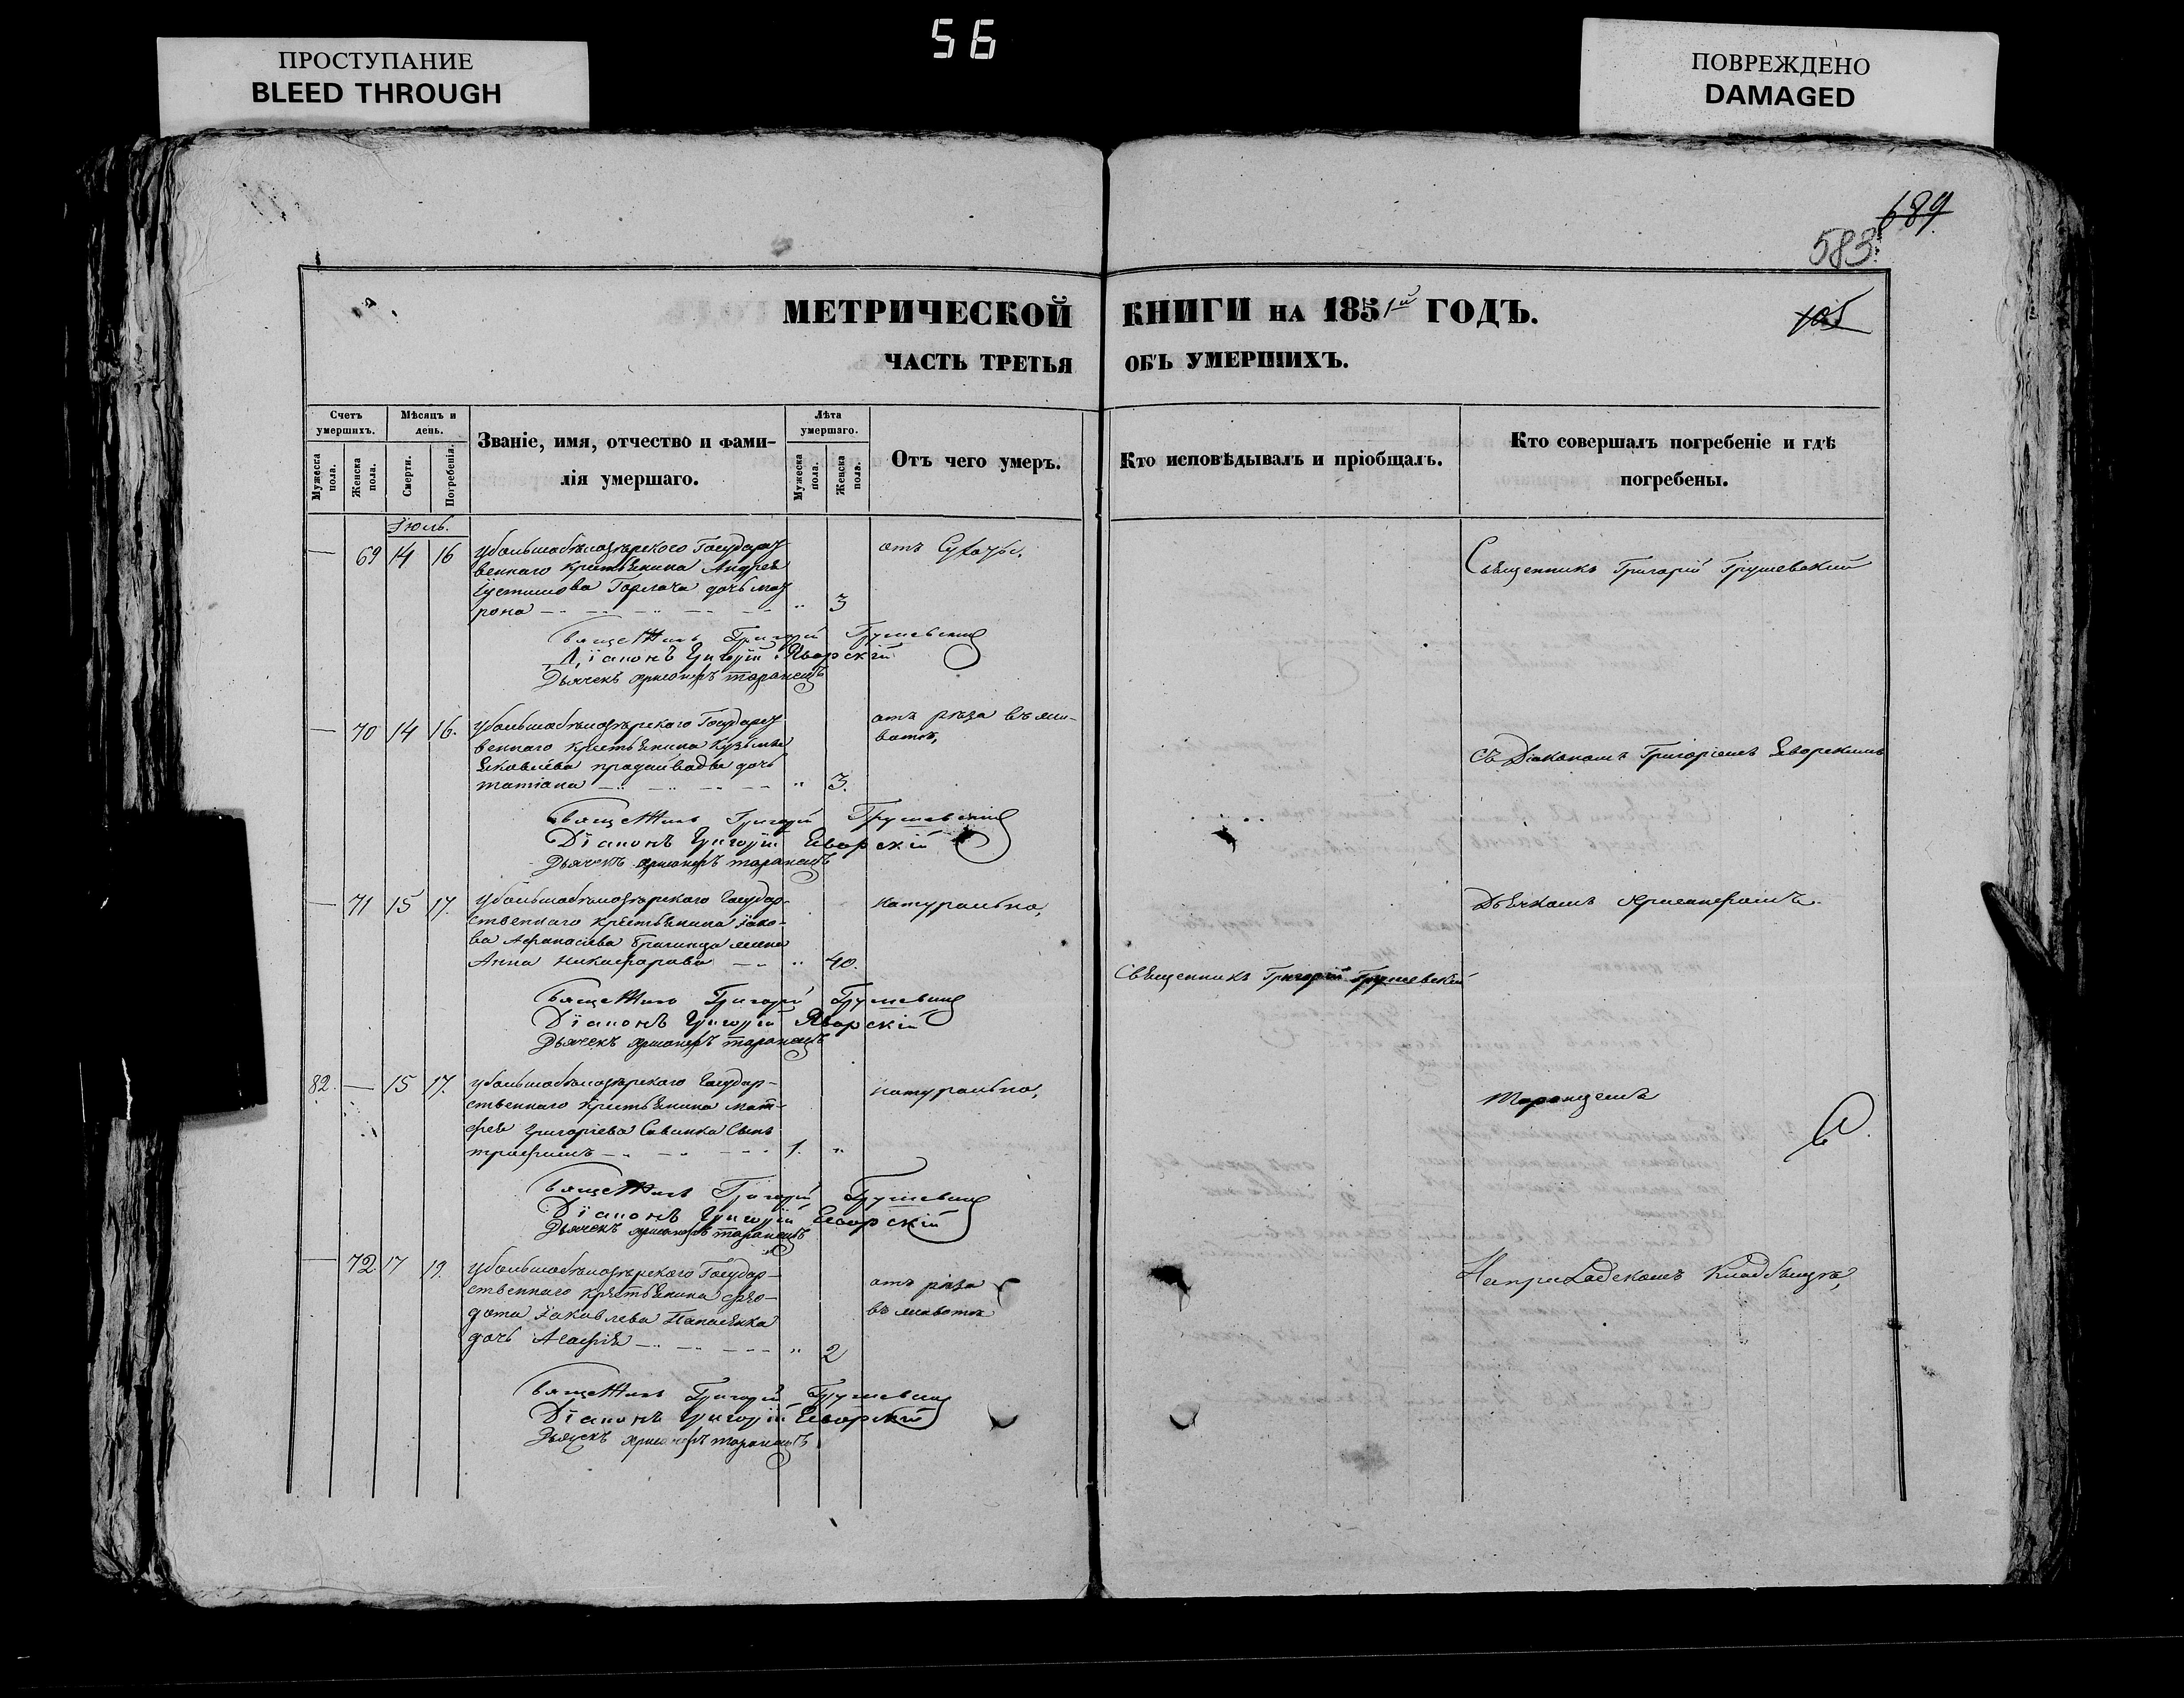 56
ПРОСТУПАНИЕ
BLEED THROUGH
ПОВРЕЖДЕНО
DAMAGED
689
583
105
МЕТРИЧЕСКОЙ КНИГИ НА 1851й ГОДЪ.
ЧАСТЬ ТРЕТЬЯ ОБЪ УМЕРШИХЪ.
Счетъ умершихъ.
Мужеска пола.
Женска пола.
Мѣсяцъ и день.
Смерти.
Погребенія.
Званіе, имя, отчество и фами-
лія умершаго.
Лѣта умершаго.
Мужеска пола.
Женска пола.
Отъ чего умеръ.
Кто исповѣдывалъ и пріобщалъ.
Кто совершалъ погребеніе и гдѣ
погребены.
Іюль.
— 69 14 16 Государст
веннаго крестьянина Андрея
Густинова Горлача дочь Мат
рона " 3
отъ Сухоты,
Священникъ Григорій Грушевскій
Священникъ Григорій Грушевскій
Діаконъ Григорій Яворскій
Дьячекъ таранецъ
— 70 14 16. Государст
веннаго крестьянина Кузьмы
Яковлева дочь
татіана " 3.
отъ рѣза въ жи-
вотѣ,
съ Діакономъ Григоріемъ Яворскимъ
Священникъ Григорій Грушевскій
Діаконъ Григорій Яворскій
Дьячекъ таранецъ
— 71 15 17. Государ-
ственнаго крестьянина Іако-
ва Афанасіева жена
Анна Никифорова " 40.
натурально,
Дьячкомъ
Священникъ Григорій Грушевскій
Священникъ Григорій Грушевскій
Діаконъ Григорій Яворскій
Дьячекъ таранецъ
82. — 15 17. Государ-
ственнаго крестьянина Мат-
фея Григоріева Савинка Сынъ
трофимъ 1. "
натурально,
таранцемъ
Священникъ Григорій Грушевскій
Діаконъ Григорій Яворскій
Дьячекъ таранецъ
— 72 17 19. Государ-
ственнаго крестьянина Фео-
дота Іаковлева
дочь Агафія " 2
отъ рѣза
въ животѣ
кладбищѣ,
Священникъ Григорій Грушевскій
Діаконъ Григорій Яворскій
Дьячекъ таранецъ